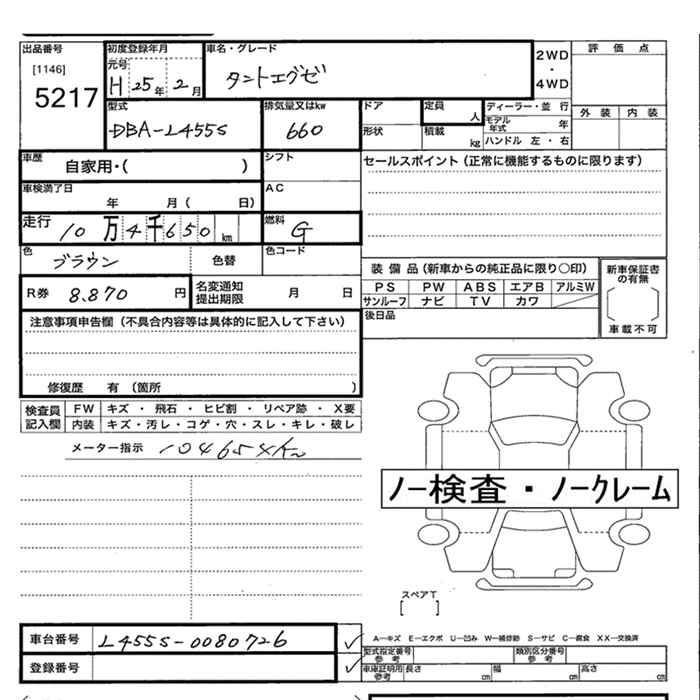 出品番号 初度登録年月 車名・グレード 2WD・4WD 評価点
[1146] 元号
5217 H 25年 2月 タントエグゼ
外装 内装
型式 排気量又はkw ドア 定員 人 ディーラー・並行
DBA-L455S 660 形状 積載 kg モデル年式 年
ハンドル 左・右
車歴 自家用・( ) シフト セールスポイント(正常に機能するものに限ります)
車検満了日 年 月( 日) AC
走行 10万4千650km 燃料 G
色 ブラウン 色替 色コード
装備品(新車からの純正品に限り○印) 新車保証書の有無
R券 8.870円 名変通知提出期限 月 日
PS PW ABS エアB アルミW
サンルーフ ナビ TV カワ
車載不可
注意事項申告欄(不具合内容等は具体的に記入して下さい) 後日品
修復歴 有 (箇所 )
検査員記入欄 FW キズ・飛石・ヒビ割・リペア跡・X要
内装 キズ・汚レ・コゲ・穴・スレ・キレ・破レ
メーター指示
ノー検査・ノークレーム
スペアT
[ ]
車台番号 L455S-0080726
A―キズ E―エクボ U―凹み W―補修跡 S―サビ C―腐食 XX―交換済
型式指定番号参考 類別区分番号参考
登録番号 車庫証明用参考 長さ cm 幅 cm 高さ cm